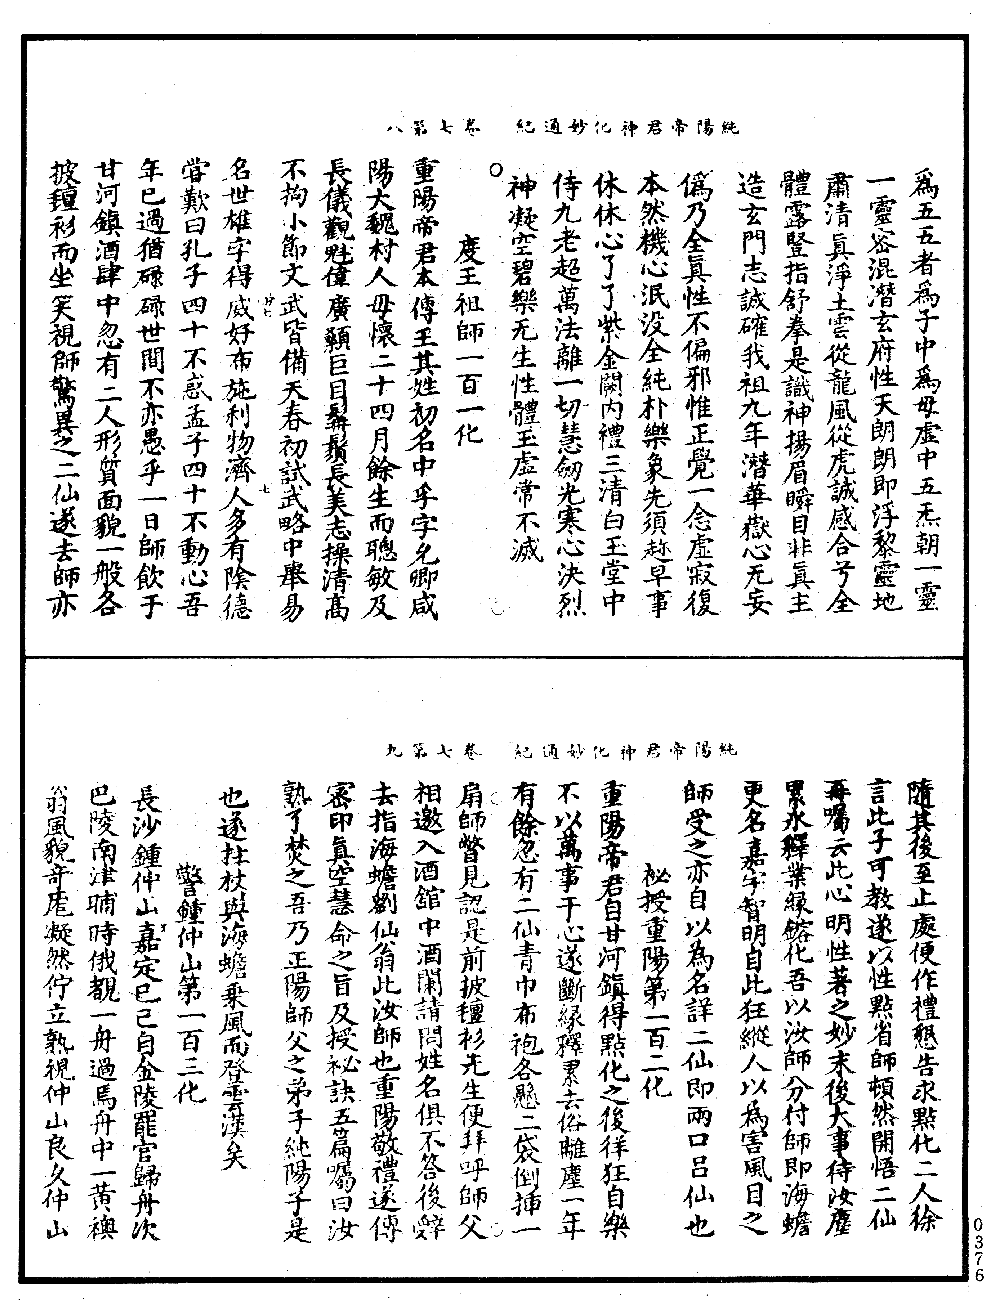 純陽帝君神化妙通紀　卷七第八
爲五五者爲子中爲母虛中五炁朝一靈
一靈容混潛玄府性天朗朗即浮黎靈地
肅清眞淨土雲從龍風從虎誠感合兮全
體露豎指舒拳是識神揚眉瞬目非眞主
造玄門志誠確我祖九年潛華嶽心无妄
僞乃全眞性不偏邪惟正覺一念虛寂復
本然機心泯没全純朴樂象先須趂早事
休休心了了紫金闕内禮三清白玉堂中
侍九老超萬法離一切慧劒光寒心決烈
神凝空碧樂无生性體玉虛常不滅
度王祖師一百一化
重陽帝君本傳王其姓初名中孚字允卿咸
陽大魏村人母懷二十四月餘生而聰敏及
長儀觀魁偉廣顙巨目鬅鬚長美志操清高
不拘小節文武皆備天春初試武略中舉易
名世雄字得威好布施利物濟人多有陰德
嘗歎曰孔子四十不惑孟子四十不動心吾
年已過猶碌碌世間不亦愚乎一日師飲于
甘河鎭酒肆中忽有二人形質面貌一般各
披氊衫而坐笑視師驚異之二仙遂去師亦
純陽帝君神化妙通紀　卷七第九
隨其後至止處便作禮懇告求點化二人徐
言此子可教遂以性點省師頓然開悟二仙
再囑云此心明性著之妙末後大事待汝塵
累氷釋業緣鎔化吾以汝師分付師即海蟾
更名嘉字智明自此狂縱人以為害風目之
師受之亦自以為名詳二仙即兩口呂仙也
祕授重陽第一百二化
重陽帝君自甘河鎭得點化之後徉狂自樂
不以萬事干心遂斷緣釋累去俗離塵一年
有餘忽有二仙青巾布袍各懸二袋倒揷一
扇師瞥見認是前披氊衫先生便拜呼師父
相邀入酒館中酒闌請問姓名俱不答後辤
去指海蟾劉仙翁此汝師也重陽敬禮遂傳
密印眞空慧命之旨及授祕訣五篇囑曰汝
熟了焚之吾乃正陽師父之弟子純陽子是
也遂拄杖與海蟾乗風而登雲漢矣
警鍾仲山第一百三化
長沙鍾仲山嘉定己巳自金陵罷官歸舟次
巴陵南津晡時俄覩一舟過焉舟中一黃襖
翁風貌奇厖凝然佇立熟視仲山良久仲山
0376